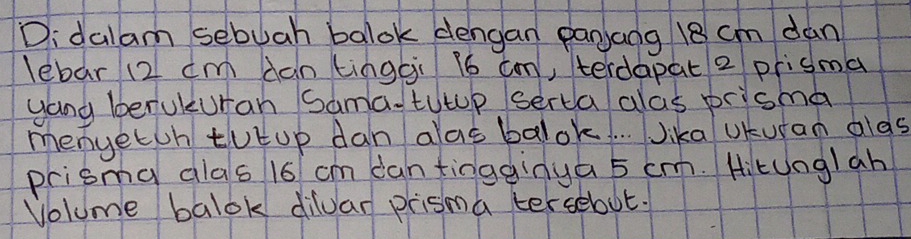 Didalam sebuah balok dengan panjang 18 cm dan
lebar 12 cm dan tinggi 16 cm, terdapat 2 prisma
yang berukuran sama. tutup serta alas prisma
menyetuh tutup dan alas balok... Jika ukuran alas
prisma alas 16 cm dan tingginya 5 cm. Hitunglah
Volume balok diluar prisma tersebut.